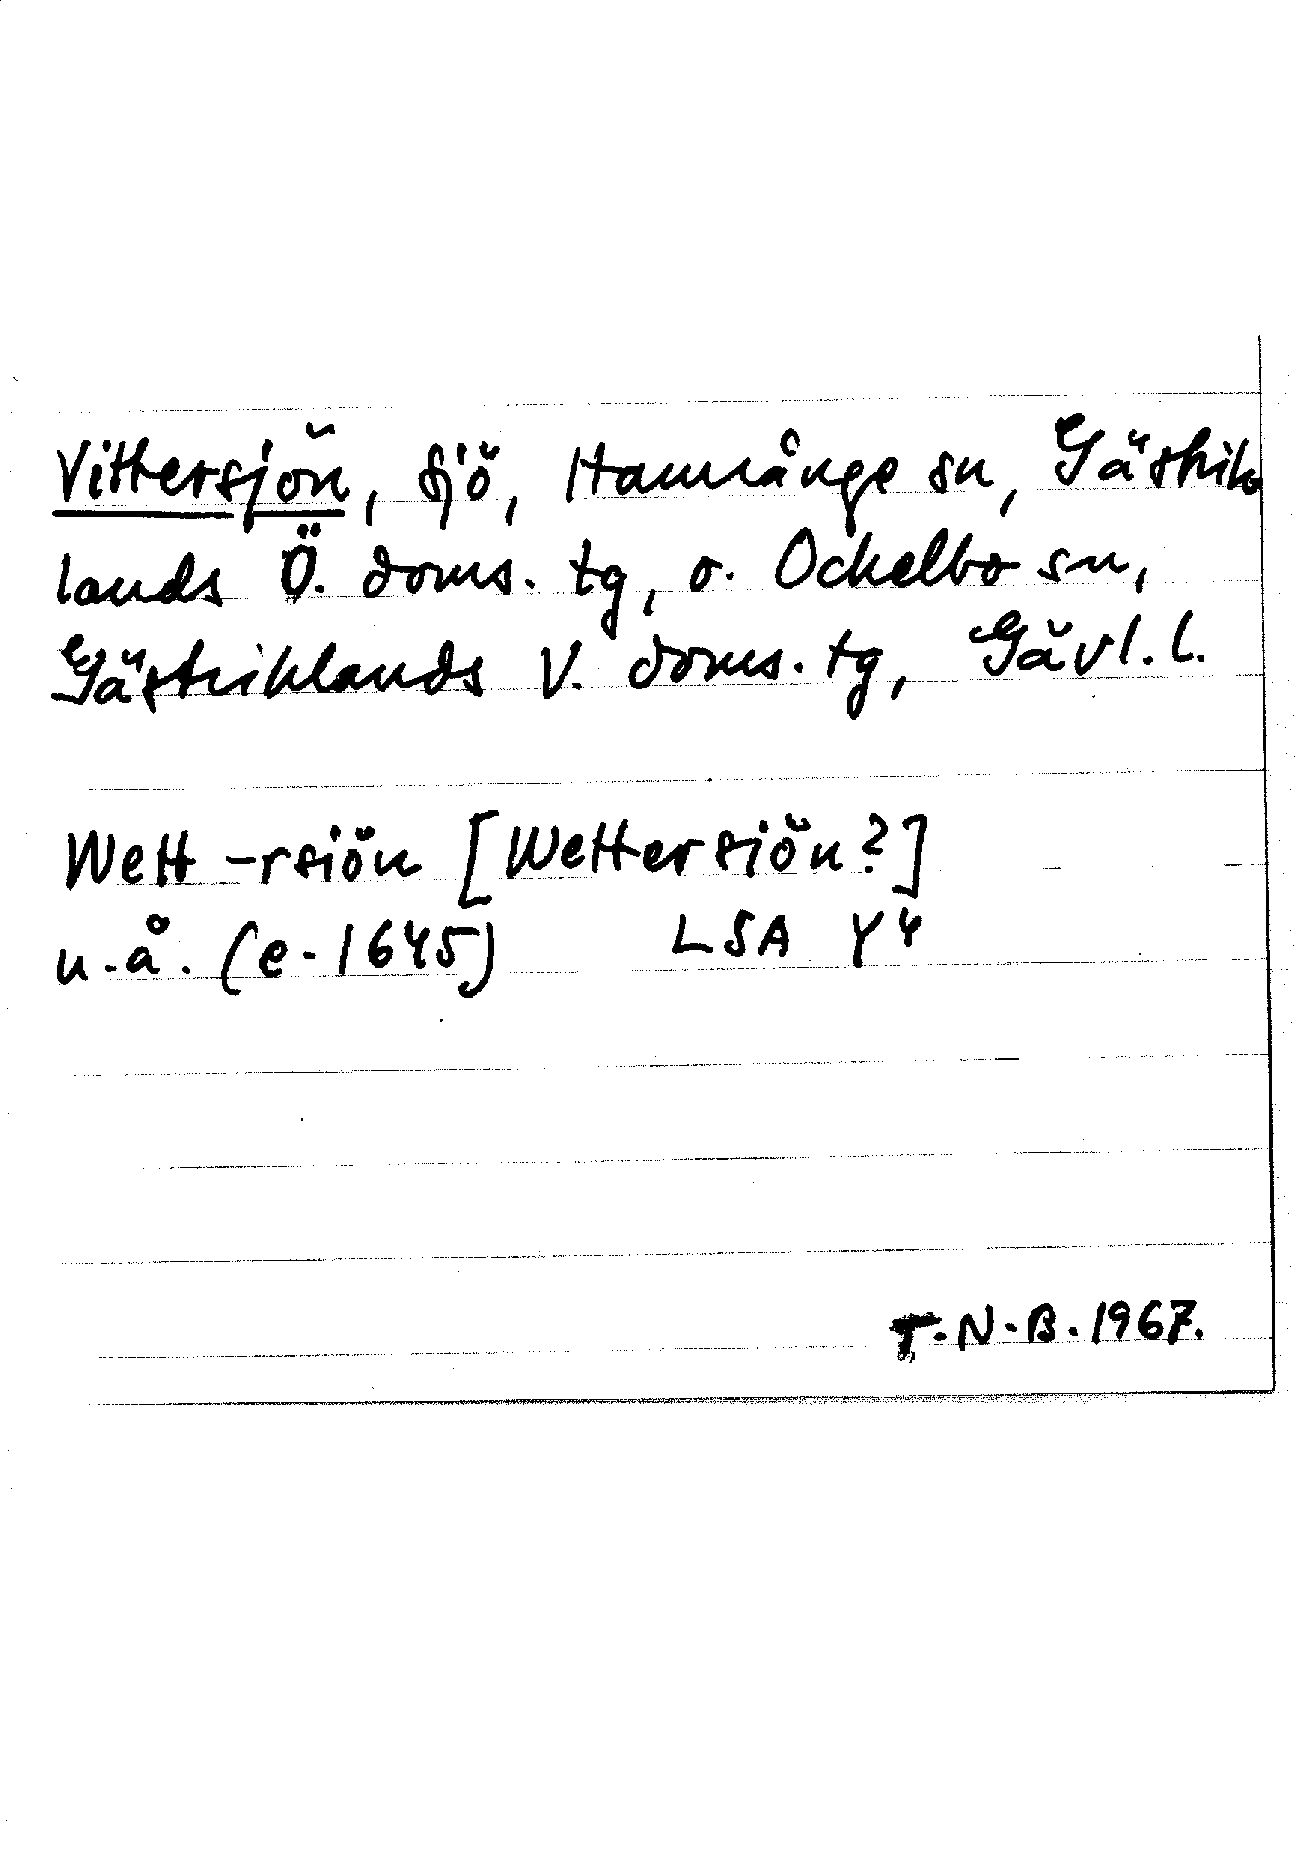 Vittersjön, sjö, Hamrånge sn, Gästrik
lands Ö. doms. tg, o. Ockelbo sn,
Gästriklands V. doms. tg, Gävl. l.
Wett-rsiön [Wettersiön?]
u.å. (e. 1645) LSA Y4
T.N.B. 1967.